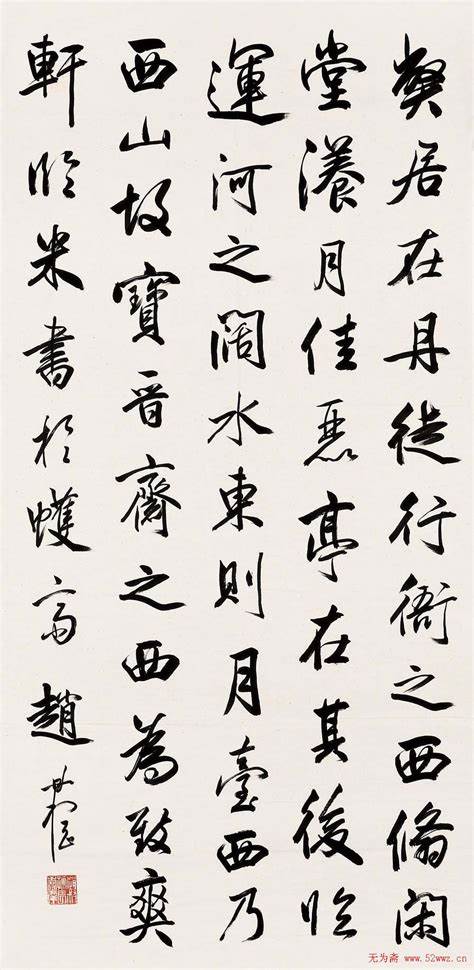 弊居在丹徒行衙之西脩閑
堂瀁月佳麗亭在其後臨
運河之闊水東則月臺西乃
西山故寶晉齋之西為致爽
軒臨米書於蠖齋趙
无为斋 www.52wwz.cn